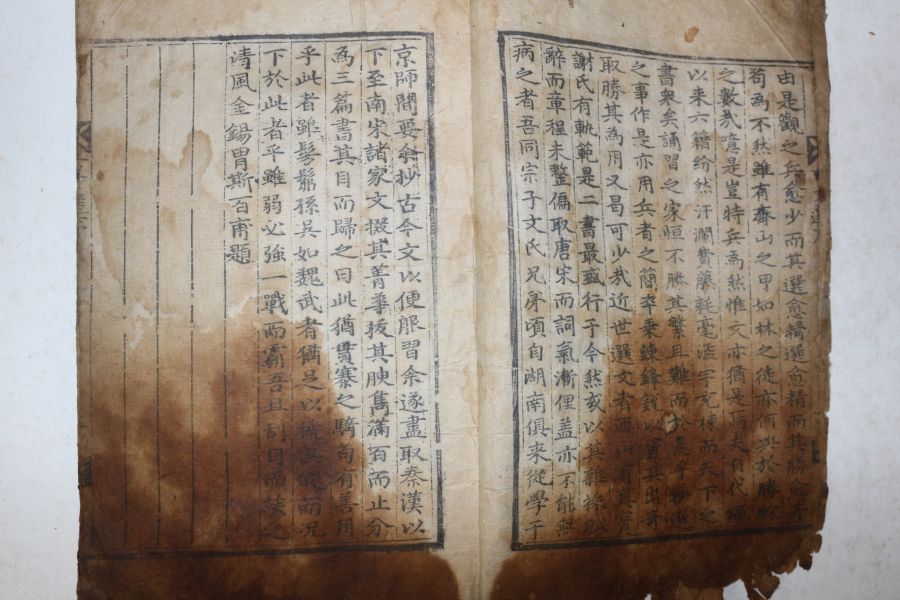 由是觀之兵愈少而其選愈精選愈精而其勝愈
苟為不然雖有齊山之甲如林之徒亦何與於勝敗
之數哉噫是豈特兵為然惟文亦猶是焉夫自代繩
以來六籍紛然汗瀾費藤耗毫溢宇充棟而天下之
書衆矣誦習之家恒不勝其繁且難而於是乎
之事作是亦用兵者之簡卒乗鍊鋒銳以其出奇
取勝其為用又曷可少哉近世選文者西山有真寶
謝氏有軌範是二書最盛行于今然亥以其雜採
辭而章程未整偏取唐宋而詞氣漸俚盖亦不能無
病之者吾同宗子文氏兄弟頃自湖南俱來從學于
京師間要余抄古今文以便服習余遂盡取秦漢以
下至南宋諸家文掇其菁華拔其腴雋滿百而止分
為三篇書其目而歸之曰此猶貫寨之騎苟有善用
乎此者雖髣髴孫吳如魏武者猶足以而況
下於此者乎雖弱必強一戰而霸吾且刮目而竢之
清風金錫胄斯百甫題